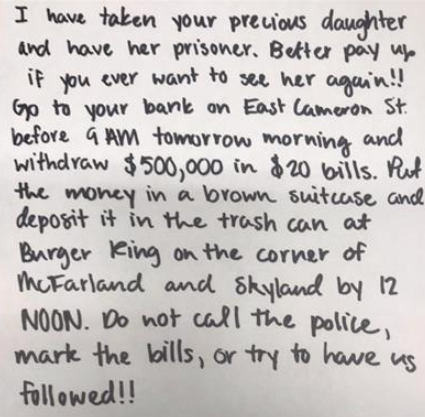 I have taken your precious daughter
and have her prisoner. Better pay up
if you ever want to see her again!!
Go to your bank on East Cameron St.
before 9 AM tomorrow morning and
withdraw $500,000 in $20 bills. Put
the money in a brown suitcase and
deposit it in the trash can at
Burger King on the corner of
McFarland and Skyland by 12
NOON. Do not call the police,
mark the bills, or try to have us
followed!!